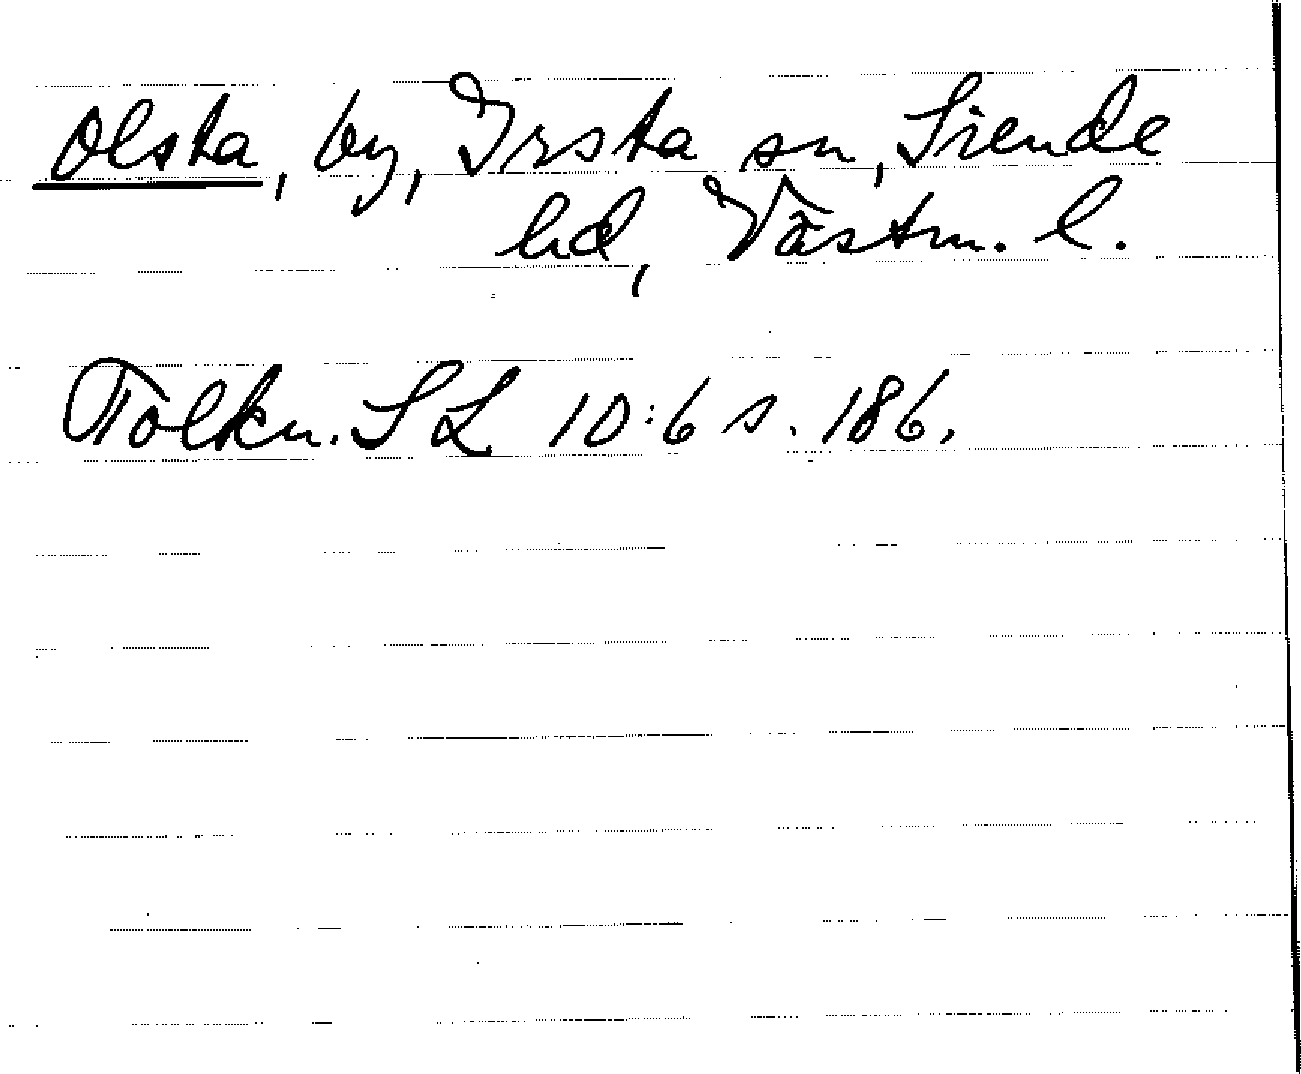 Olsta, by, Irsta sn, Siende
hd, Västm. l.
Tolkn. SL 10:6 s. 186.